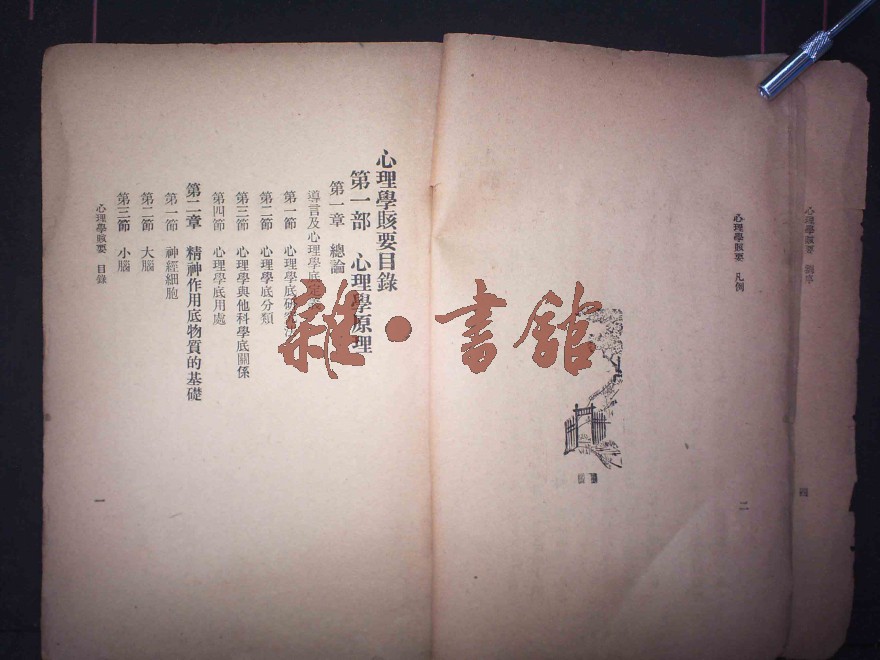 心理學賅要 劉序
四
心理學賅要 凡例
二
心理學賅要目錄
第一部 心理學原理
第一章 總論
導言及心理學底定義
第一節 心理學底研究法
第二節 心理學底分類
第三節 心理學與他科學底關係
第四節 心理學底用處
第二章 精神作用底物質的基礎
第一節 神經細胞
第二節 大腦
第三節 小腦
心理學賅要 目錄
一
雜·書館